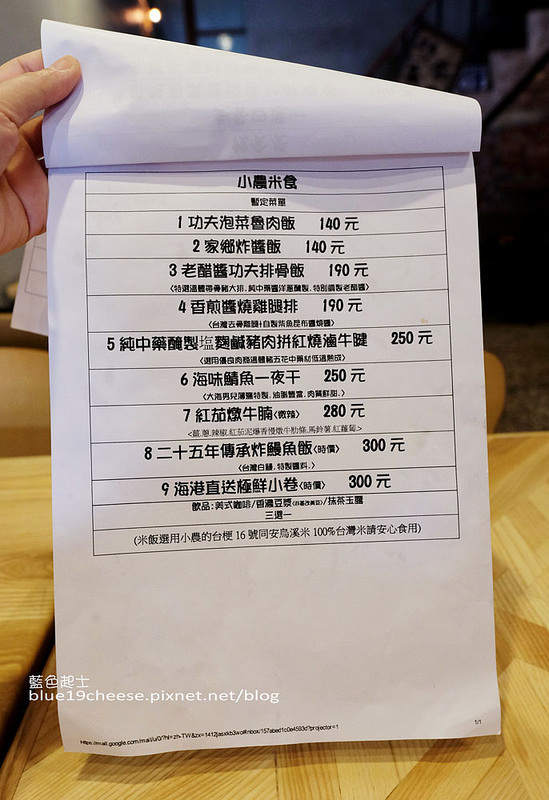 小農米食
暫定菜單
1 功夫泡菜魯肉飯 140 元
2 家鄉炸醬飯 140 元
3 老醋醬功夫排骨飯 190 元
<特選溫體帶骨豬大排.純中藥醬洋蔥醃製.特別調製老醋醬>
4 香煎醬燒雞腿排 190 元
<台灣去骨雞腿+自製柴魚昆布醬燒醬>
5 純中藥醃製塩麴鹹豬肉拼紅燒滷牛腱 250 元
<選用優良肉商溫體豬五花中藥材低溫熟成>
6 海味鯖魚一夜干 250 元
<大海男兒薄鹽特製.油脂豐富.肉質鮮甜.>
7 紅茄燉牛腩<微辣> 280 元
<薑.蔥.辣椒.紅茄泥爆香慢燉牛肋條.馬鈴薯.紅蘿蔔>
8 二十五年傳承炸鰻魚飯<時價> 300 元
<台灣白鰻.特製醬料.>
9 海港直送極鮮小卷<時價> 300 元
飲品:美式咖啡/香濃豆漿(非基改黃豆)/抹茶玉露
三選一
(米飯選用小農的台梗 16 號同安烏溪米 100%台灣米請安心食用)
藍色起士
blue19cheese.pixnet.net/blog
1/1